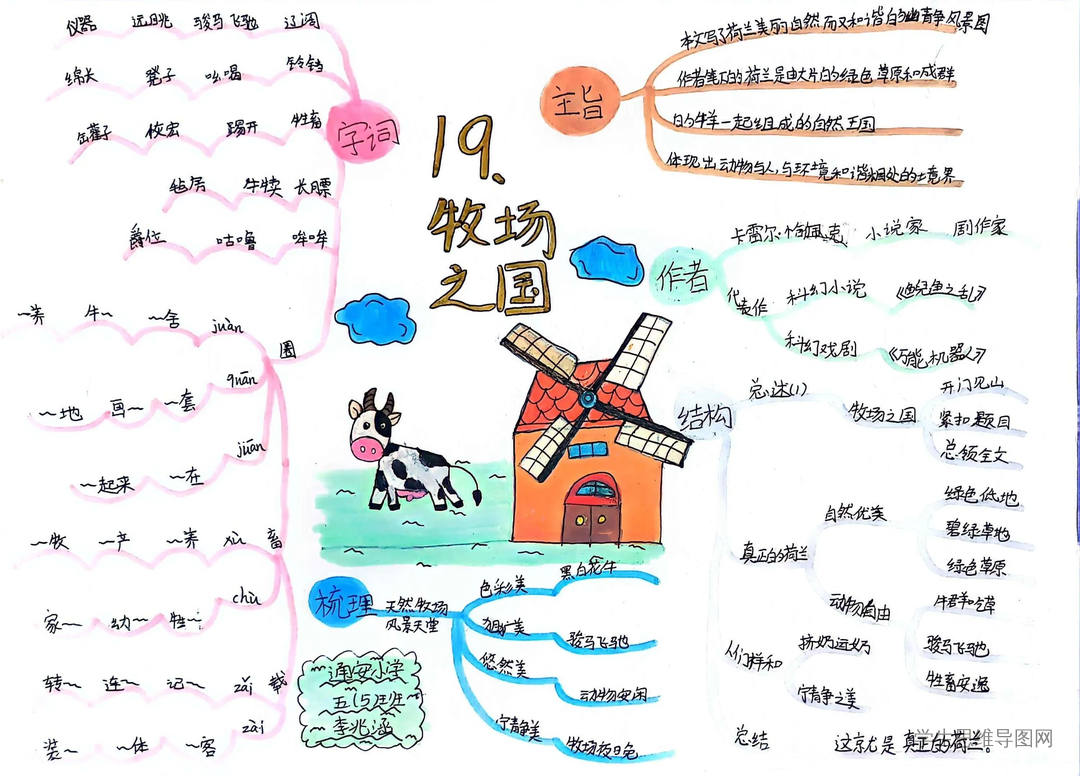 19、
牧场
之国
字词
仪器 远眺 骏马飞驰 辽阔
绵长 凳子 吆喝 铃铛
罐子 踢开 牲畜
毡房 牛犊 长膘
爵位 咕噜 哞哞
圈
~养 牛~ ~舍 juàn
~地 画~ ~套 quān
~起来 ~在 juān
畜
~牧 ~产 ~养 xù
家~ 幼~ 牲~ chù
载
转~ 连~ 记~ zǎi
装~ ~体 ~客 zài
主旨
本文写了荷兰美丽自然而又和谐的幽静风景图
作者笔下的荷兰是由大片的绿色草原和成群
的牛羊一起组成的自然王国
体现出动物与人,与环境和谐相处的
作者
卡雷尔·恰佩克 小说家 剧作家
代表作
科幻小说 《鲵鱼之乱》
科幻戏剧 《万能机器人》
结构
总述(1) 牧场之国
开门见山
紧扣题目
总领全文
真正的荷兰
自然优美
绿色低地
碧绿草地
绿色草原
动物自由
牛群吃草
骏马飞驰
牲畜安逸
人们祥和
挤奶运奶
宁静之美
总结 这就是真正的荷兰。
梳理
天然牧场
风景天堂
色彩美 黑白花牛
粗犷美 骏马飞驰
悠然美 动物安闲
宁静美 牧场夜色
通安小学
五(5)班
李兆涵
学生思维导图网